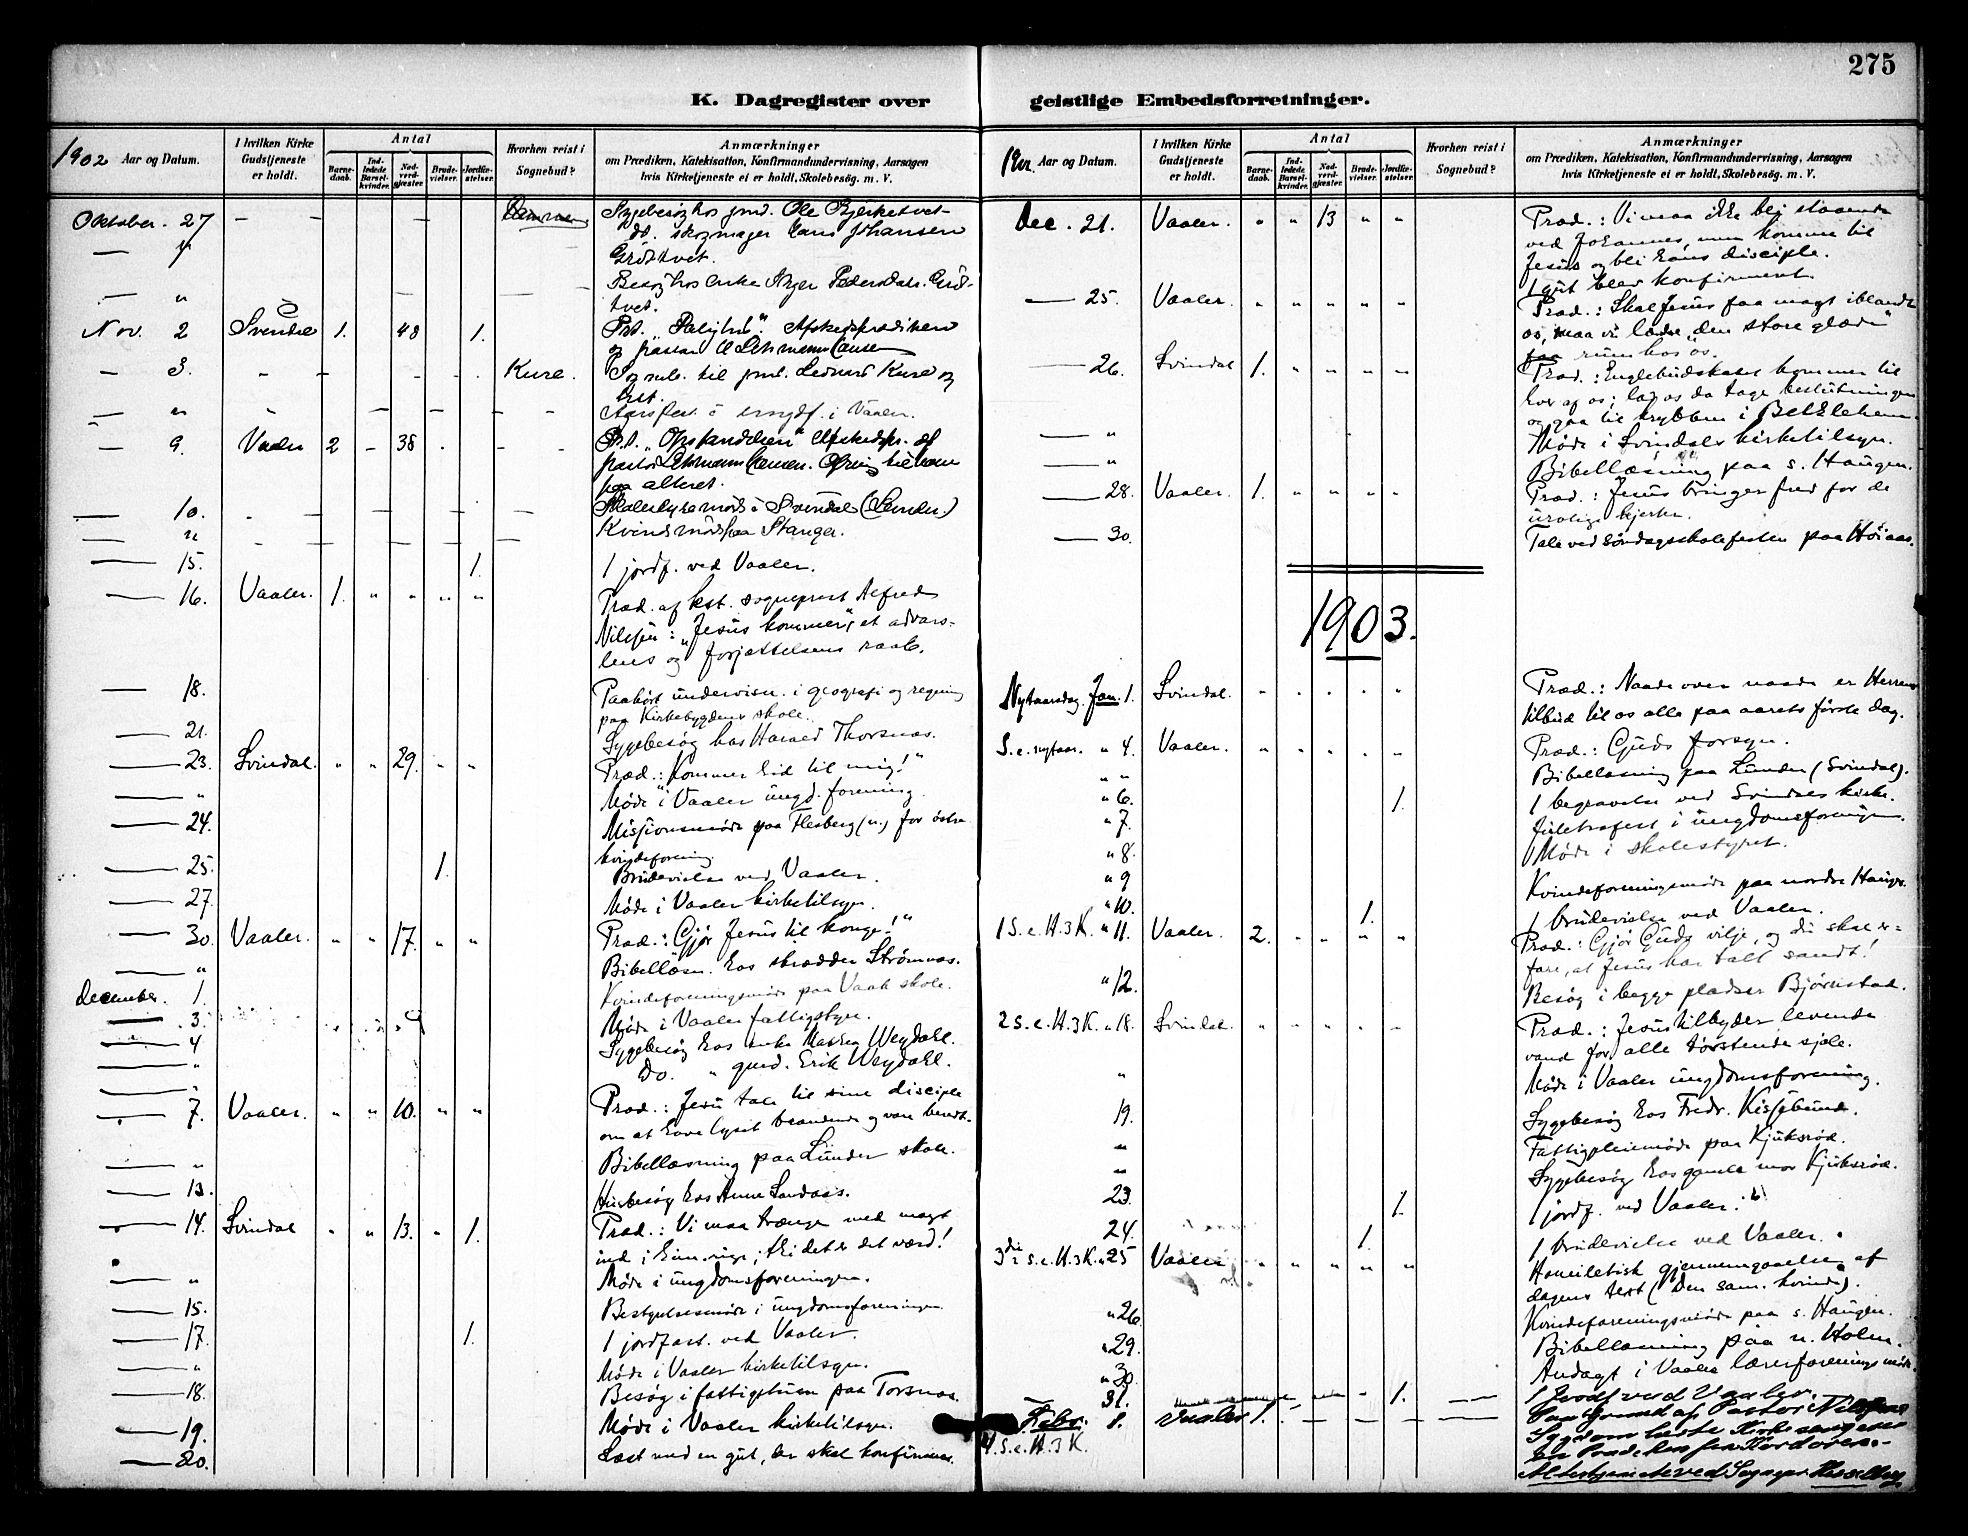 275
K. Dagregister over geistlige Embedsforretninger.
1902 Aar og Datum.
I hvilken Kirke Gudstjeneste er holdt.
Antal
Barnedaab.
Indledede Barselkvinder.
Nadverdgjæster.
Brudevielser.
Jordfæstelser.
Hvorhen reist i Sognebud?
Anmærkninger
om Prædiken, Katekisation, Konfirmandundervisning, Aarsagen
hvis Kirketjeneste ei er holdt, Skolebesøg. m. V.
Oktober. 27 Sygebesøg hos gmd. Ole Bjerketvet
do. skogmager Hans Johansen
Grøstvet.
Besøg hos enke
tvet.
Nov. 2 Svendal 1. 48 1. Afskedsprædiken
3. Kure. til gmd. Lednard Kure og
Aarsfest i ungdf. i Vaaler.
9. Vaaler 2 38 "Opstandelsen" Afskedspr. af
pastor Lehmann Hansen.
paa alteret.
10. Skolestyremøde i Svendal (Lunder.)
" Kvindemøde paa Stanger.
15. 1. 1 jordf. ved Vaaler.
16. Vaaler. 1. " " " " Præd. af kst. sogneprest Alfred
Nilssen: "Jesus kommer", et advars-
lens og forjættelsens raab.
18. Paahørt undervisn. i geografi og regning
paa Kirkebygdens skole.
21. Sygebesøg hos Harald Thorsnæs.
23. Svindal. " " 29. " " Præd.: "Kommer hid til mig!"
" Møde i Vaaler ungd. forening.
24. Missionsmøde paa Flesberg (n.) for østre
kvindeforening.
25. 1. Brudevielse ved Vaaler.
27. Møde i Vaaler kirketilsyn.
30. Vaaler. " " 17. " " Præd.: "Gjør Jesus til konge!"
" Bibellæsn. hos skrædder Strømnæs.
December. 1. Kvindeforeningsmøde paa Vaak skole.
3. Møde i Vaaler fattigstyre.
4 Sygebesøg hos enke Mathea Weydahl.
" Do. " gmd. Erik Weydahl.
7. Vaaler. " " 10. " " Præd.: Jesu tale til sine disciple
om at have lyset brændende og være beredt.
" Bibellæsning paa Lunder skole.
13. Husbesøg hos Anne Sandaas.
14. Svindal " " 13. " 1. Præd.: Vi maa trænge med magt
ind i himmerige; thi det er det værd!
" Møde i ungdomsforeningen.
15. Bestyrelsesmøde i ungdomsforeningen
17. 1. 1 jordfæst. ved Vaaler.
" Møde i Vaaler kirketilsyn.
18. Besøg i fattigstuen paa Torsnæs.
19. Møde i Vaaler kirketilsyn.
20. Læst med en gut, der skal konfirmeres.
Aar og Datum.
I hvilken Kirke Gudstjeneste er holdt.
Antal
Barnedaab.
Indledede Barselkvinder.
Nadverdgjæster.
Brudevielser.
Jordfæstelser.
Hvorhen reist i Sognebud?
Anmærkninger
om Prædiken, Katekisation, Konfirmandundervisning, Aarsagen
hvis Kirketjeneste ei er holdt, Skolebesøg. m. V.
Dec. 21. Vaaler. " " 13 " " Præd.: Vi maa ikke bli staaende
ved Johannes, men komme til
Jesus og bli hans disciple.
1 gut blev konfirmert.
25. Vaaler. " " " " " Præd.: Skal Jesus faa magt iblandt
os, maa vi lade "den store glæde"
faa rum hos os.
26. Svindal 1. " " " " Præd.: Englebudskabet kommer til
hver af os; lad os da tage beslutningen
og gaa til krybben i Bethlehem.
" Møde i Svindals kirketilsyn.
" Bibellæsning paa s. Haugen.
28. Vaaler. 1. " " " " Præd.: Jesus bringer fred for de
urolige hjerter.
30. Tale ved søndagsskolefesten paa Høiaas.
1903.
Nytaarsdag Jan. 1. Svindal. " " " " " Præd.: Naade over naade er Herrens
tilbud til os alle paa aarets første dag.
S. e. nytaar. " 4. Vaaler. " " " " " Præd.: Guds forsyn.
" " Bibellæsning paa Lunder (Svindal).
" 6. 1. 1 begravelse ved Svindals kirke.
" 7. Juletræfest i ungdomsforeningen.
" 8. Møde i skolestyret.
" 9 Kvindeforeningsmøde paa nordre Haugen.
" 10. 1. 1 brudevielse ved Vaaler.
1 S. e. H.3K. " 11. Vaaler. 2. " " " " Præd.: Gjør Guds vilje, og du skal er-
fare, at Jesus har talt sandt!
" 12. Besøg i begge pladser Bjørnstad.
2 S. e. H.3K. " 18. Svindal. " " " " " Præd.: Jesus tilbyder levende
vand for alle tørstende sjæle.
" Møde i Vaaler ungdomsforening.
19. Sygebesøg hos Fredr. Kissebund.
" Fattigpleiemøde paa Kjuksrød.
" Sygebesøg hos gamle mor Kjuksrød.
23. 1. 1 jordf. ved Vaaler.
24. 1. 1 brudevielse ved Vaaler.
3die S. e. H.3K. " 25 Vaaler " " " " " Homiletisk gjennemgaaelse af
dagens text (Den sam. kvinde).
" 26 Kvindeforeningsmøde paa s. Haugen.
" 29. Bibellæsning paa n. Holm.
" 30. Andagt i Vaaler lærerforenings møde.
31. 1. 1 jordf. ved Vaaler.
Febr. 1. Vaaler 1. Paa Grund af Pastor Nilssens
4. S. e. H.3K. Sygdom læste Kirkesangeren
en Prædiken